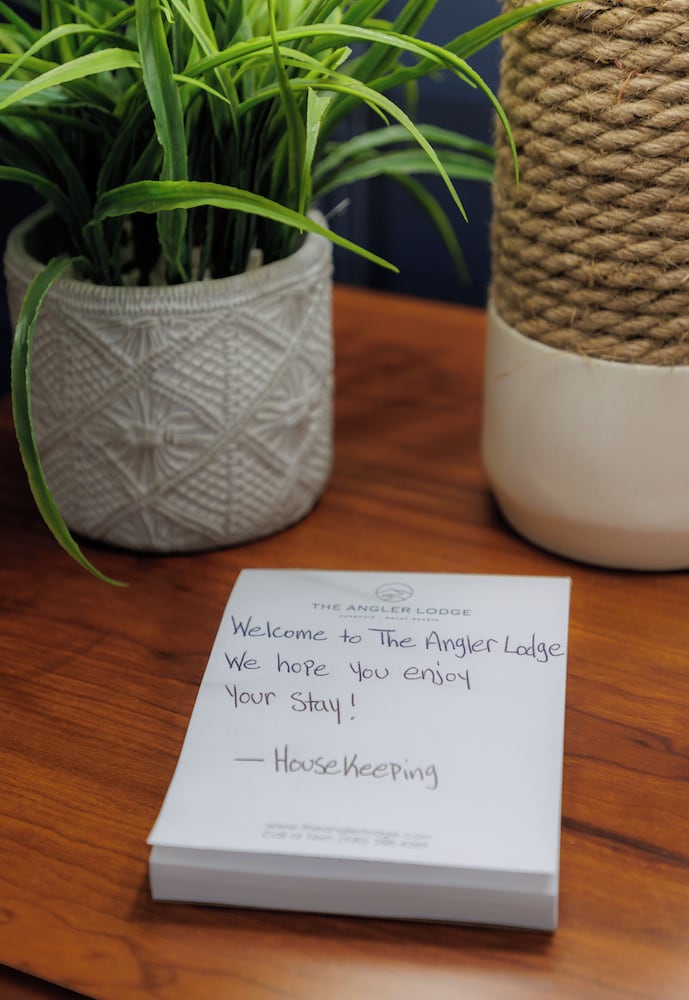 THE ANGLER LODGE
DUNSMUIR · MOUNT SHASTA
Welcome to The Angler Lodge
We hope you enjoy
Your Stay!
— Housekeeping
www.theanglerlodge.com
Call or Text: